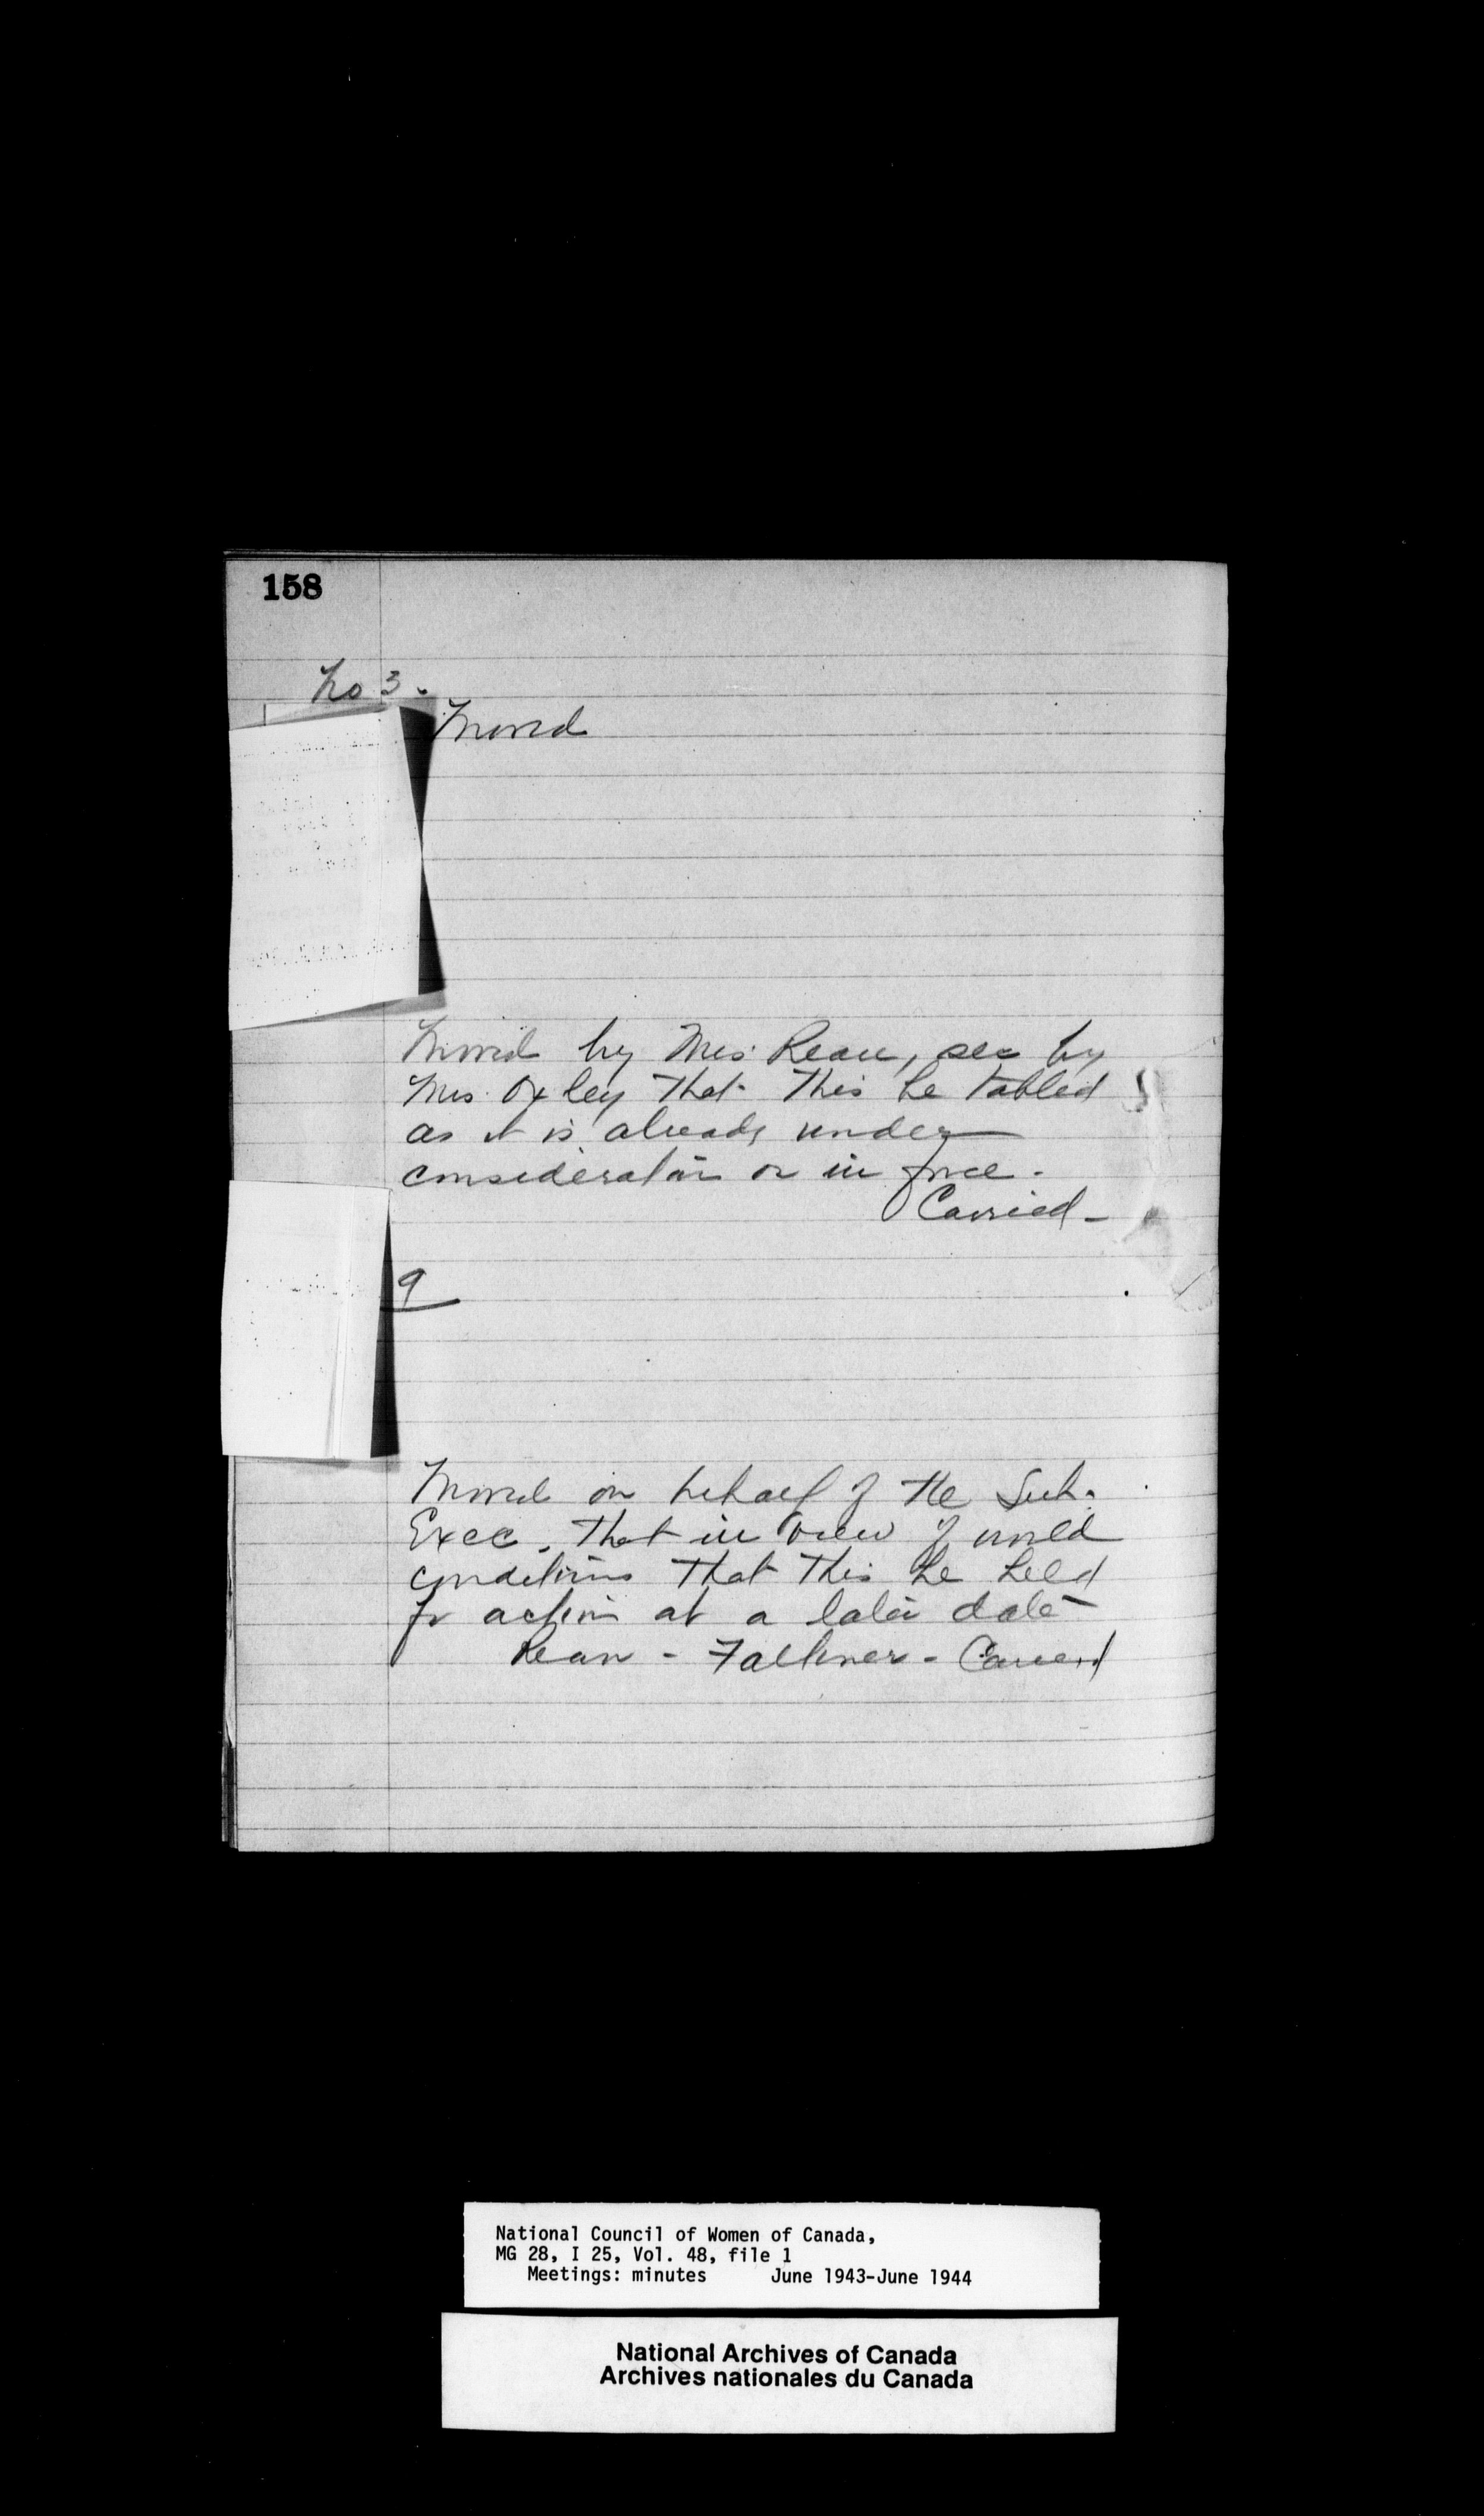 158
No 3.
Moved
Moved by Mrs. Rean, sec by
Mrs. Oxley that this be tabled
as it is already under
consideration or in force.
Carried -
9
Moved on behalf of the Sub.
Exec. that in view of world
conditions that this be held
for action at a later date -
Rean - Falkner - Carried
National Council of Women of Canada,
MG 28, I 25, Vol. 48, file 1
Meetings: minutes June 1943-June 1944
National Archives of Canada
Archives nationales du Canada